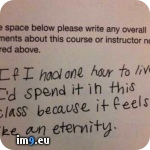 e space below please write any overall
ments about this course or instructor no
red above.
If I had one hour to live
I'd spend it in this
class because it feels
ke an eternity.
im9.eu